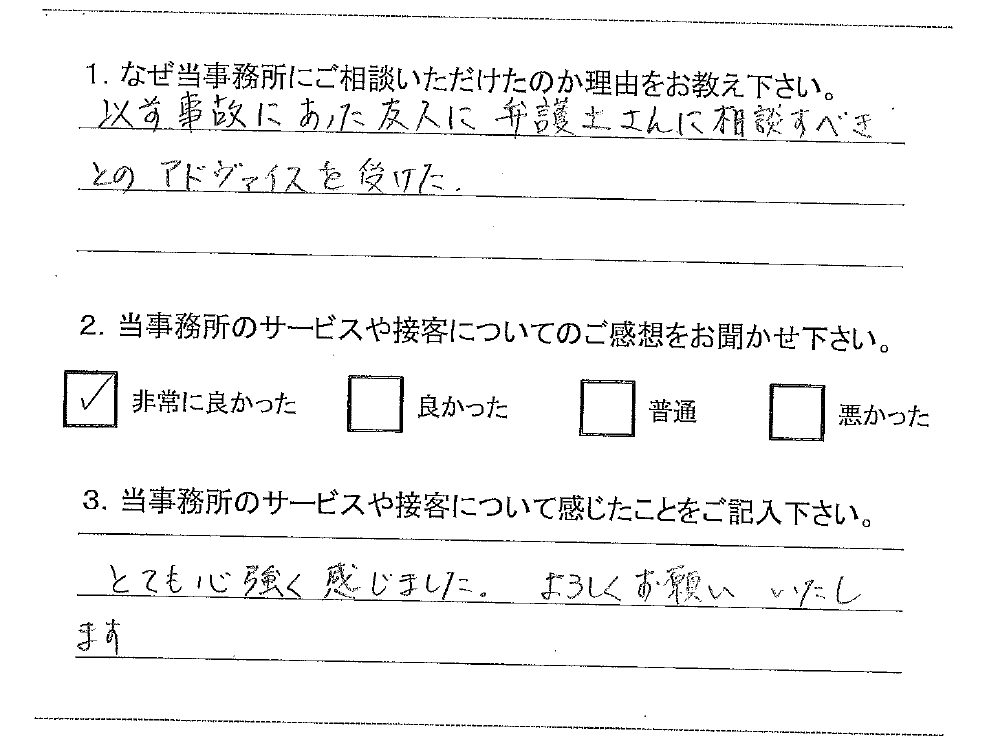 1. なぜ当事務所にご相談いただけたのか理由をお教え下さい。
以前事故にあった友人に弁護士さんに相談すべき
とのアドヴァイスを受けた.
2. 当事務所のサービスや接客についてのご感想をお聞かせ下さい。
✓ 非常に良かった 良かった 普通 悪かった
3. 当事務所のサービスや接客について感じたことをご記入下さい。
とても心強く感じました。 よろしくお願い いたし
ます